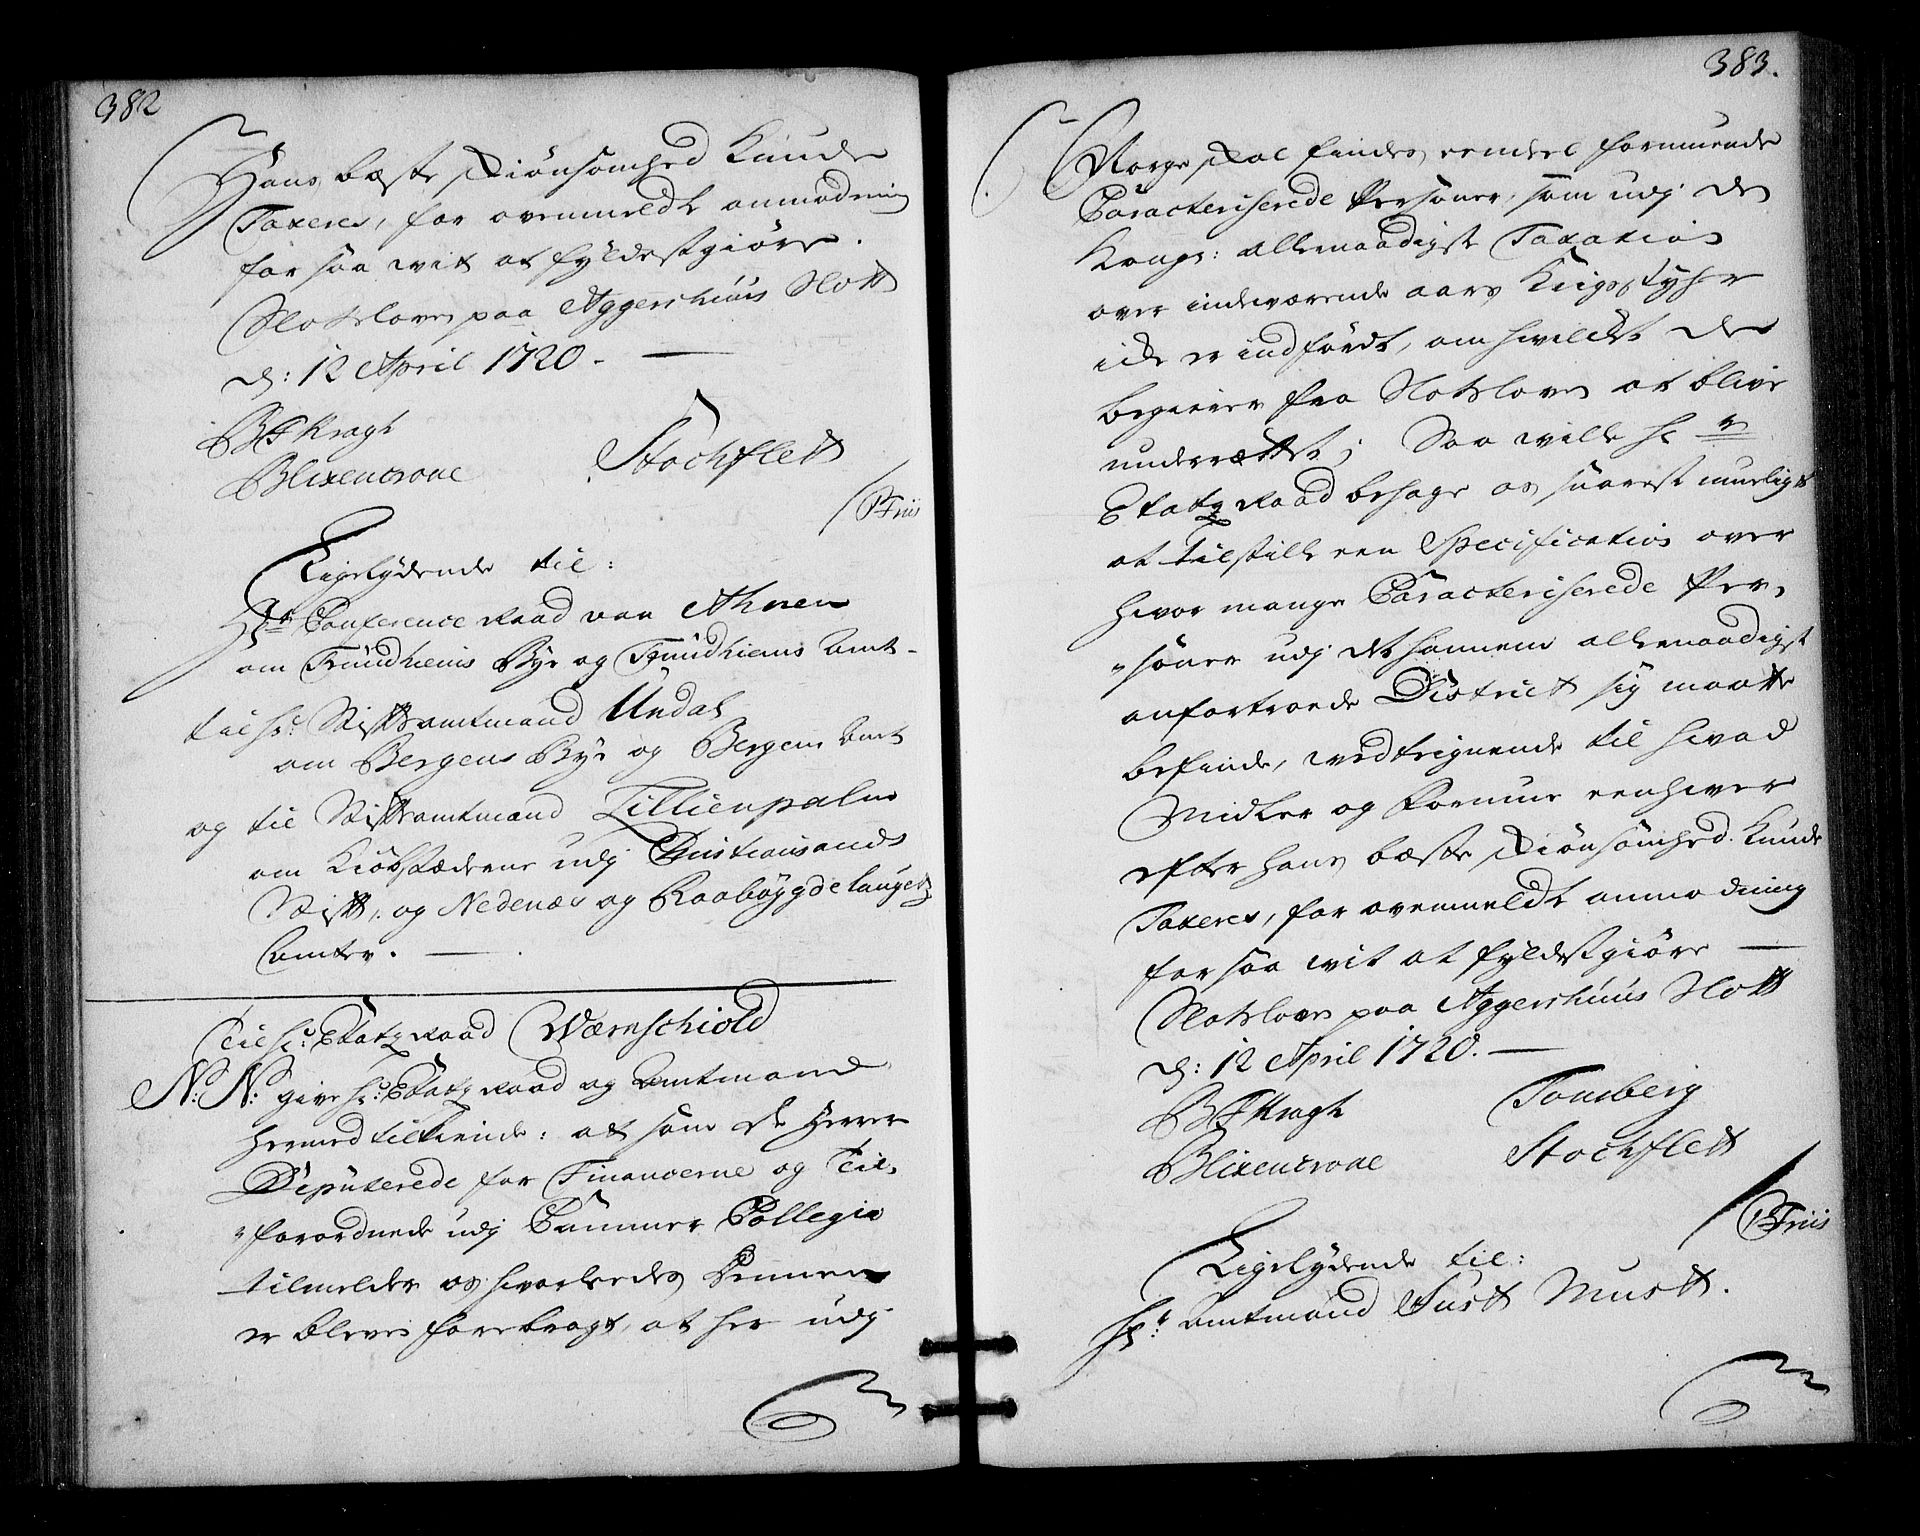 382
Hans bæste skiönsomhed kunde
Taxeres, for ovenmeldte anmodning
for saa wit at fyldestgiöre.
Slotsloven paa Aggershuus Slott
d: 12 April 1720.
BF Kragh
Blixencrone Stochflett
/ PFriis
Ligelydende til:
Hr Conference Raad von Ahnen
om Trundhiems Bye og Trundhiems Amt
til Hr: Stiftsamtmand Undal
om Bergens Bye og Bergens Amt
og til Stiftsamtmand Lillienpalm
om Kiöbstæderne udj Christiansands
Stift, og Nedenæs og Raabøygdelaugetz
Amter.
Til Hr: Etatz Raad Wærnschiold
N: N: give Hr: Etatz Raad og Amtmand
hermed tilkiende: at som de Herrer
Deputerede for Financerne og Til-
forordnede udj Cammer Collegio
tilmelder os hvorledes Dennem
er bleven forebragt, at her udj
383.
Norge skal findes eendeel formuende
Caracteriserede Personer, som udj den
Kongl: allernaadigste Taxation
over indeværende aars Kriigs styhr
icke er indfördt, om hvilcket de
begierer fra Slotsloven at blive
underrættet; Saa wille Hr
Etatz Raad behage os snarest mueligst
at tilstille een Specification over
hvor mange Caracteriserede Per-
soner udj det hannem allernaadigst
anfortroede District sig maatte
befinde, med teignende til hvad
Midler og Formue eenhver
efter hans bæste skiönsomhed kunde
Taxeres, for ovenmeldte anmodning
for saa wit at fyldestgiöre
Slotsloven paa Aggershuus Slott
d: 12 April 1720.
BF Kragh Tonsberg
Blixencrone Stochflett
/ PFriis
Ligelydende til:
Hr: Amtmand Just Must.